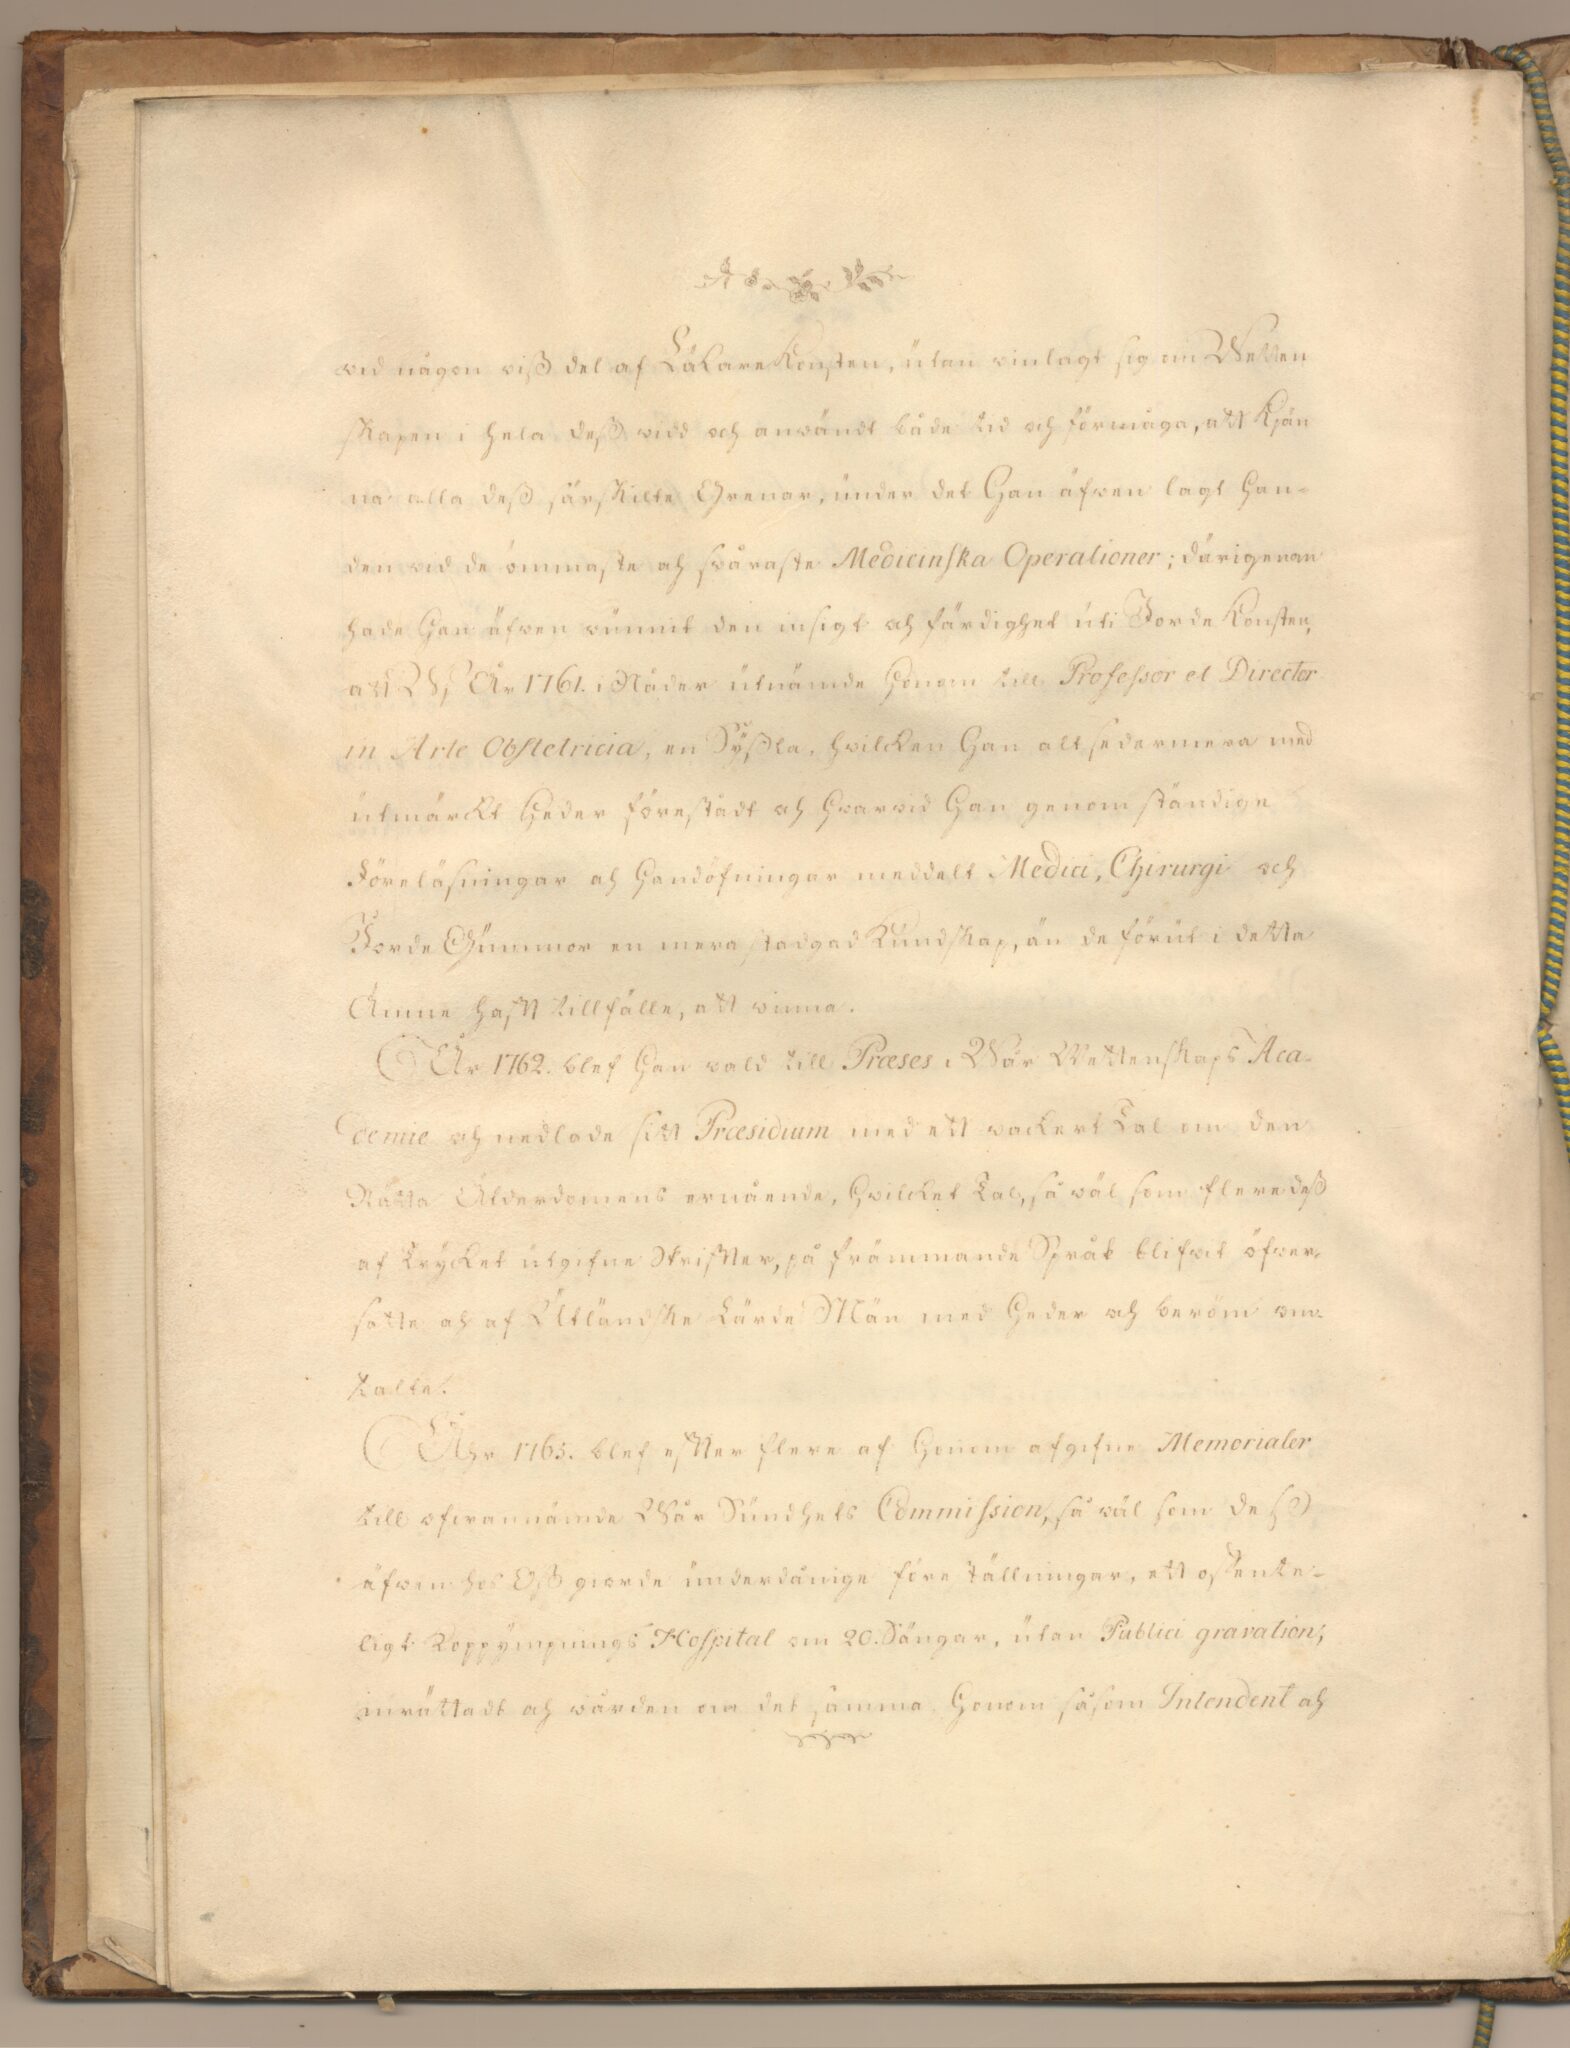 wid någon wiß del af Läkare Konsten, utan winlagt sig om Wetten
skapen i hela deß widd och anwändt både tid och förmåga, att kjän
na alla deß särskilte Grenar, under det Han äfwen lagt Han-
den wid de ömmaste och swåraste Medicinska Operationer; därigenom
hade Han äfwen wunnit den insigt och färdighet uti Jorde Konsten,
att Wj År 1761. i Nåder utnämde Honom till Professor et Director
in Arte Obstetricia, en Syßla, hwilcken Han alt sedermera med
utmärckt Heder förestådt och Hwarwid Han genom ständige
Föreläsningar och Handöfningar meddelt Medici, Chirurgi och
Jorde Gummor en mera stadgad Kundskap, än de förut i detta
Ämne haft tillfälle, att winna.
År 1762. blef Han wald till Præses i Wår Wettenskaps Aca-
demie och nedlade sitt Præsidium med ett wackert Tal om den
Rätta Ålderdomens ernående, Hwilcket Tal, så wäl som flere deß
af Trycket utgifne Skrifter, på främmande Språk blifwit öfwer-
satte och af Utländske Lärde Män med Heder och beröm om-
talte.
Åhr 1765. blef efter flere af Honom afgifne Memorialer
till ofwannämde Wår Sundhets Commission, så wäl som de
äfwen hos Oß giorde underdånige föreställningar, ett offente-
ligt Koppympnings Hospital om 20. Sängar, utan Publici gravation,
inrättadt och wården om det samma Honom såsom Intendent och